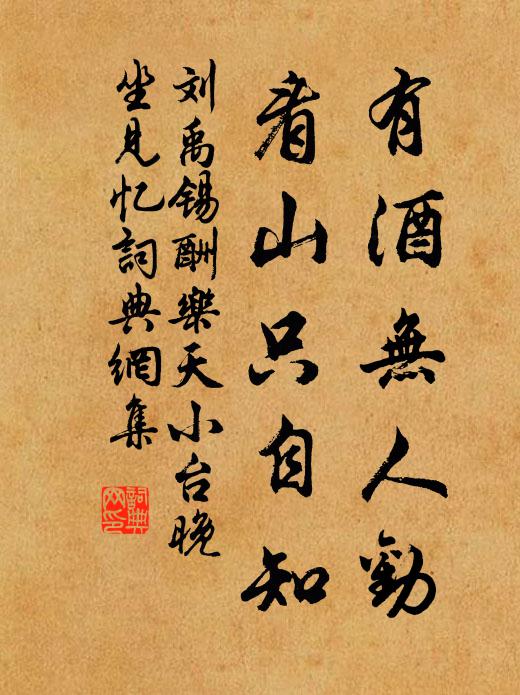 有酒無人勸
看山只自知
刘禹锡酬樂天小台晚
坐見忆詞典網集
詞典
网印